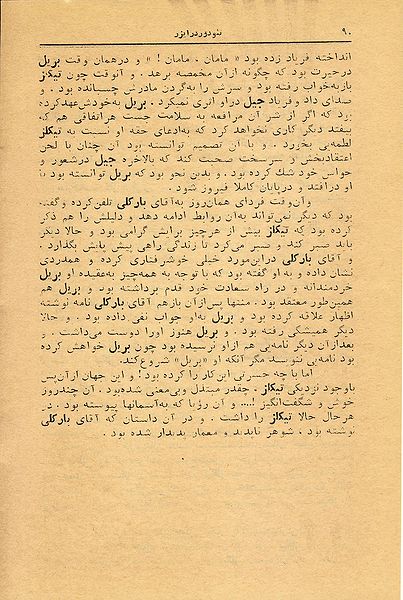 ۹۰
تئودور درایزر
انداخته فریاد زده بود « مامان ، مامان ! » و درهمان وقت بریل
درحیرت بود که چگونه ازآن مخمصه برهد . و آنوقت چون تیکلز
بازبخواب رفته بود و سرش را بهگردن مادرش چسبانده بود ، و
صدای داد و فریاد جیل دراو اثری نمیکرد . بریل بهخودشعهدکرده
بود که اگر از شر آن مرافعه به سلامت جست هراتفاقی هم که
بیفتد دیگر کاری نخواهد کرد که بهادعای حقه او نسبت به تیکلز
لطمهیی بخورد . و با آن تصمیم توانسته بود آن چنان با لحن
اعتقادبخش و سرسخت صحبت کند که بالاخره جیل درشعور و
حواس خود شك کرده بود . و بدین نحو بود که بریل توانسته بود با
او درافتد و درپایان کاملا فیروز شود .
وآنوقت فردای همانروز بهآقای بارکلی تلفنکرده وگفته
بود که دیگر نمیتواند بهآن روابط ادامه دهد و دلیلش را هم ذکر
کرده بود که تیکلز بیش از هرچیز برایش گرامی بود و حالا دیگر
باید صبر کند و صبر میکرد تا زندگی راهی پیش پایش بگذارد .
و آقای بارکلی دراینمورد خیلی خوشرفتاری کرده و همدردی
نشان داده و به او گفته بود که با توجه به همهچیز بهعقیده او بریل
خردمندانه و در راه سعادت خود قدم برداشته بود و بریل هم
همینطور معتقد بود . منتها پسازآن بازهم آقای بارکلی نامه نوشته
اظهار علاقه کرده بود و بریل بهاو جواب نفی داده بود . و حالا
دیگر همیشکی رفته بود . و بریل هنوز اورا دوست میداشت . و
بعدازآن دیگر نامهیی هم از او نرسیده بود چون بریل خواهش کرده
بود نامهیی ننویسد مگر آنکه او «بریل» شروعکند.
اما با چه حسرتی اینکار را کرده بود! و این جهان ازآنپس
باوجود نزدیکی تیکلز ، چقدر مبتذل وبیمعنی شدهبود . آن چندروز
خوش و شگفتانگیز !.... و آن رؤیا که بهآسمانها پیوسته بود . در
هرحال حالا تیکلز را داشت . و در آن داستان که آقای بارکلی
نوشته بود ، شوهر ناپدید و معمار پدیدار شده بود .